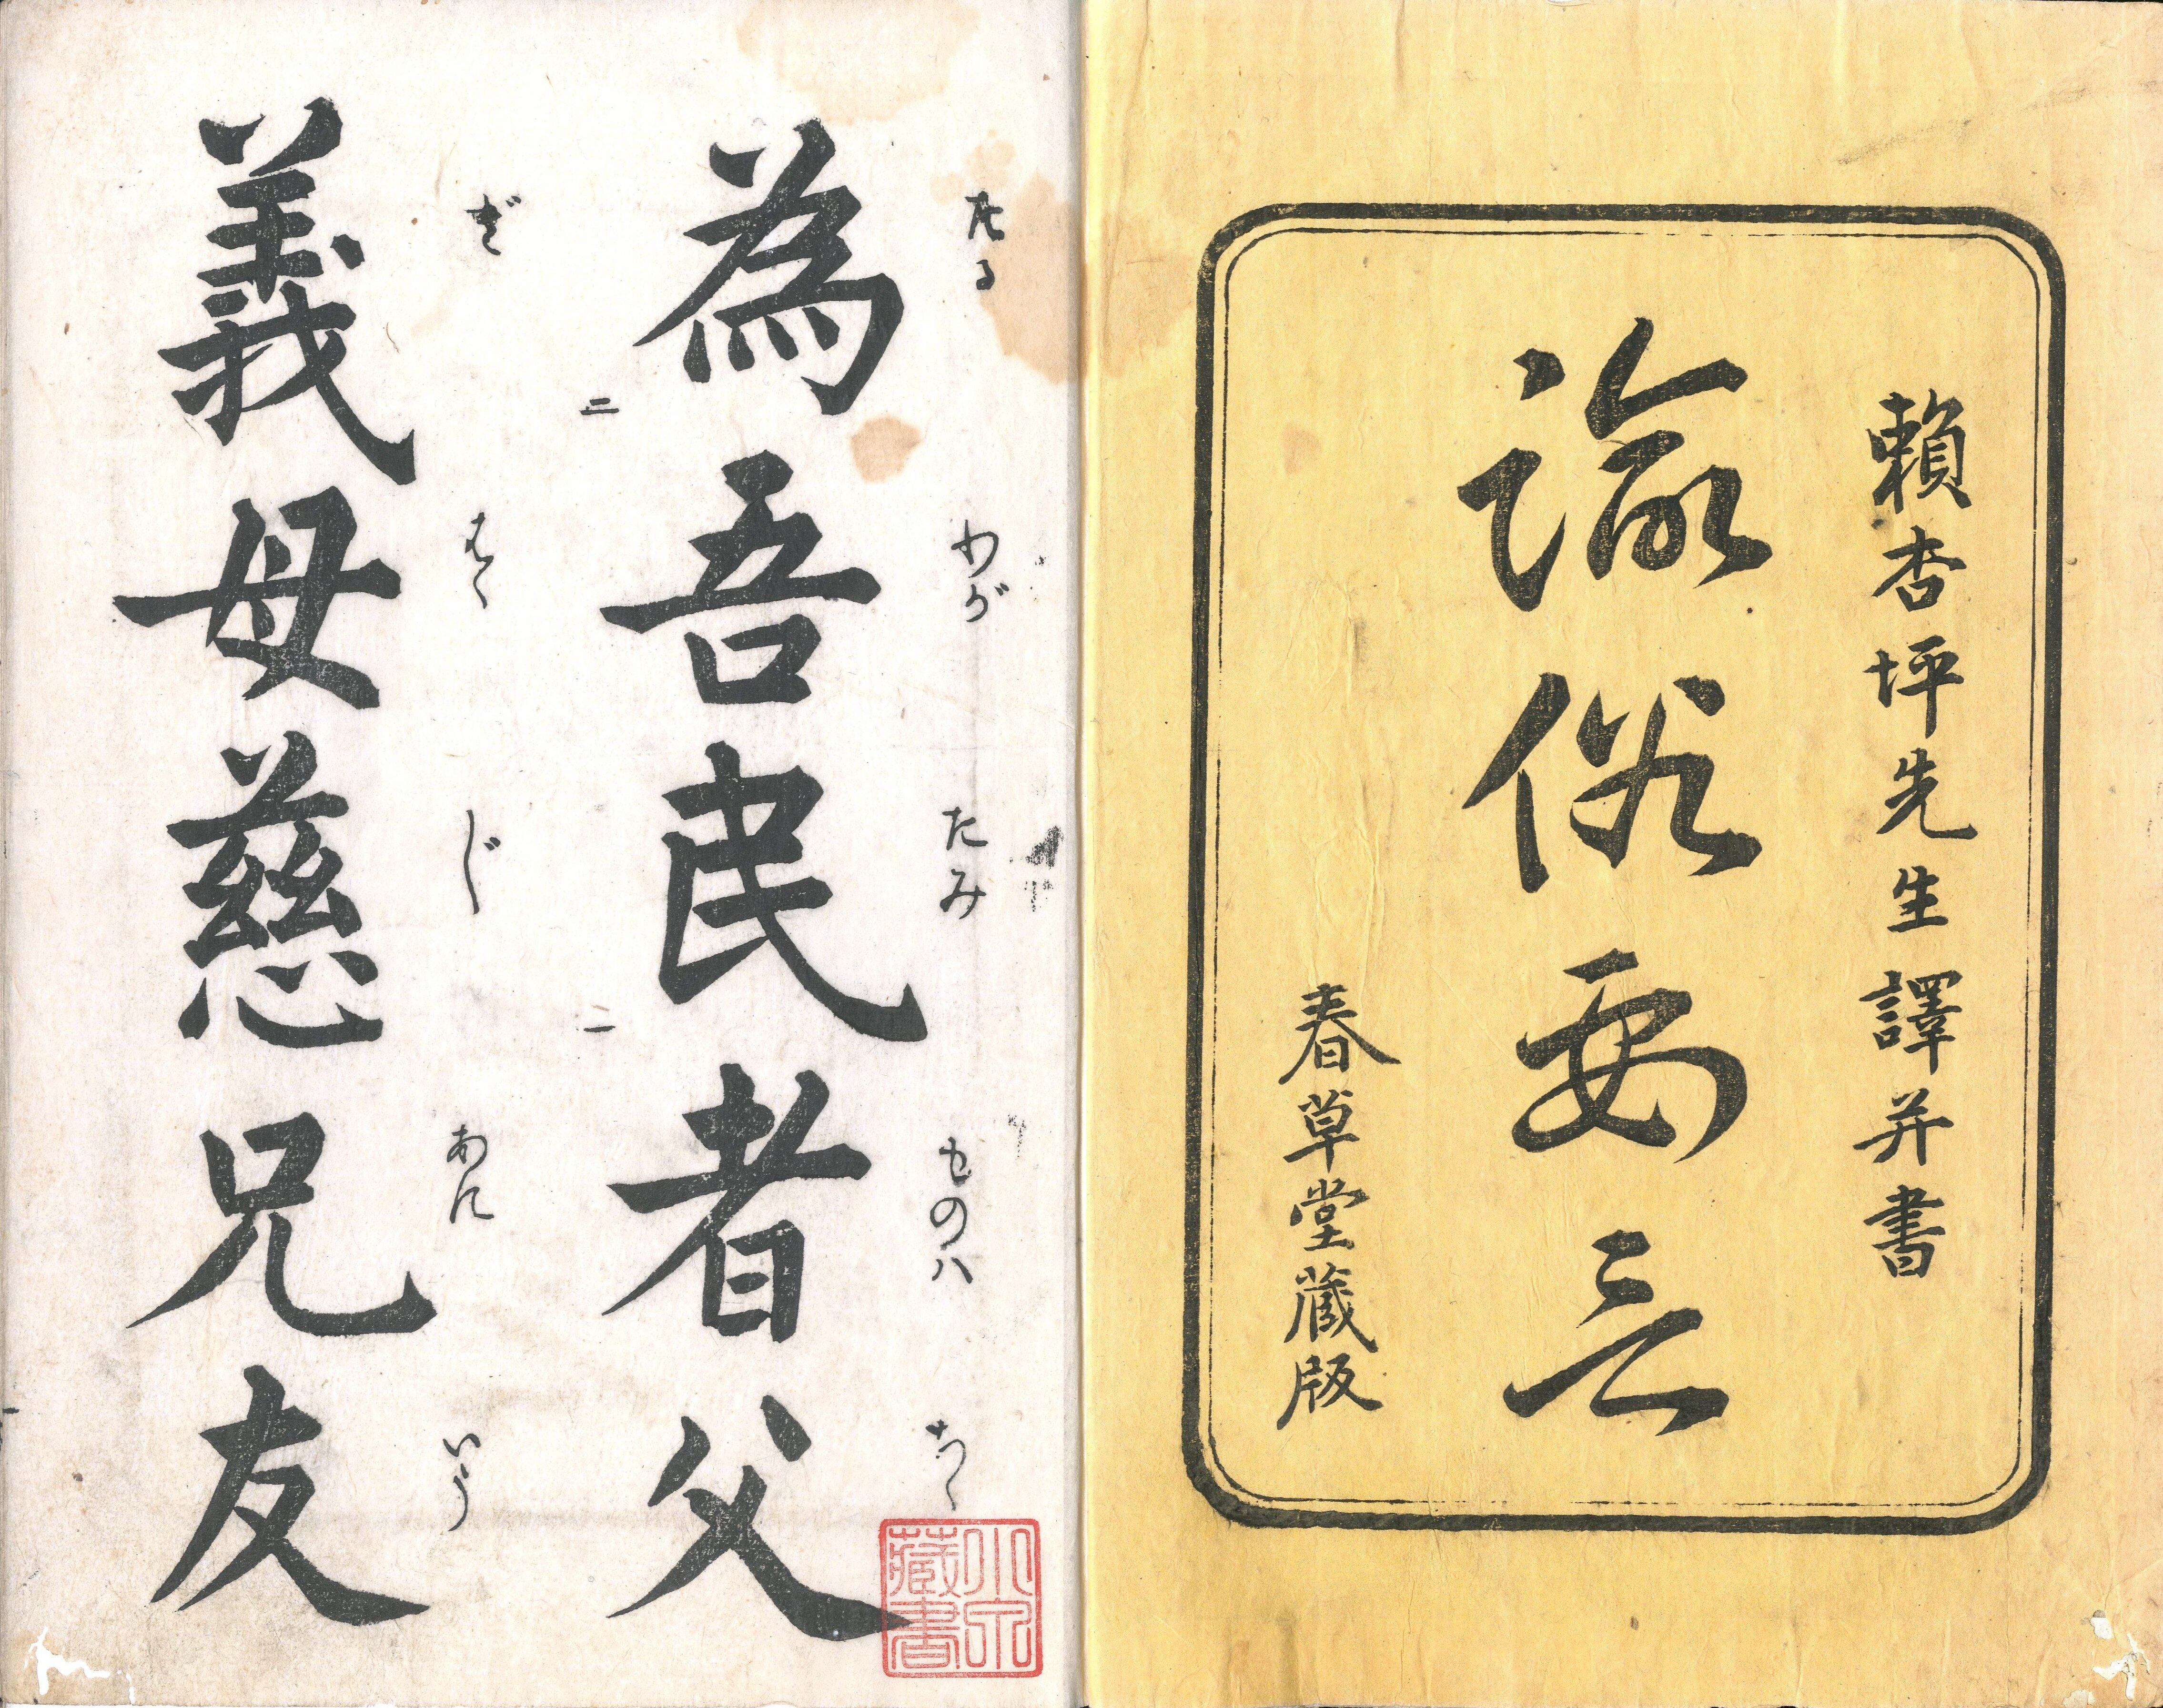 賴杏坪先生譯并書
諭俗要言
春草堂藏版
為吾民者父
たる わが たみ ものハ ちゝ
二 一
義母慈兄友
ぎ はゝ じ あに いう
小泉藏書